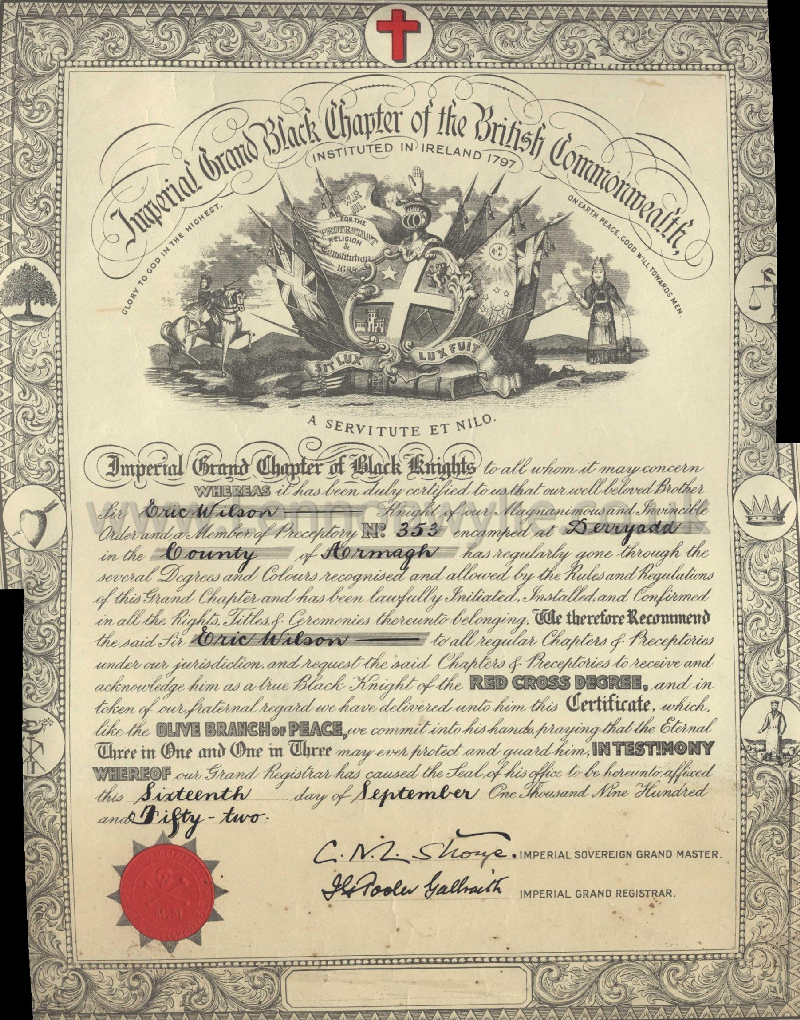 Imperial Grand Black Chapter of the British Commonwealth,
INSTITUTED IN IRELAND 1797
GLORY TO GOD IN THE HIGHEST.
ON EARTH PEACE, GOOD WILL TOWARDS MEN.
FOR THE
PROTESTANT
RELIGION
&
Constitution
1688
SIT LUX LUX FUIT
A SERVITUTE ET NILO.
Imperial Grand Chapter of Black Knights to all whom it may concern
WHEREAS it has been duly certified to us, that our well beloved Brother
Sir Eric Wilson Knight of our Magnanimous and Invincible
Order and a Member of Preceptory No. 353 encamped at Derryadd
in the County of Armagh has regularly gone through the
several Degrees and Colours recognised and allowed by the Rules and Regulations
of this Grand Chapter and has been lawfully Initiated, Installed, and Confirmed
in all the Rights, Titles & Ceremonies thereunto belonging. We therefore Recommend
the said Sir Eric Wilson to all regular Chapters & Preceptories
under our jurisdiction, and request the said Chapters & Preceptories to receive and
acknowledge him as a true Black Knight of the RED CROSS DEGREE, and in
token of our fraternal regard we have delivered unto him this Certificate, which,
like the OLIVE BRANCH of PEACE, we commit into his hands, praying that the Eternal
Three in One and One in Three may ever protect and guard him, IN TESTIMONY
WHEREOF our Grand Registrar has caused the Seal of his office to be hereunto affixed
this Sixteenth day of September One Thousand Nine Hundred
and Fifty-two.
IMPERIAL SOVEREIGN GRAND MASTER.
Galbraith IMPERIAL GRAND REGISTRAR.